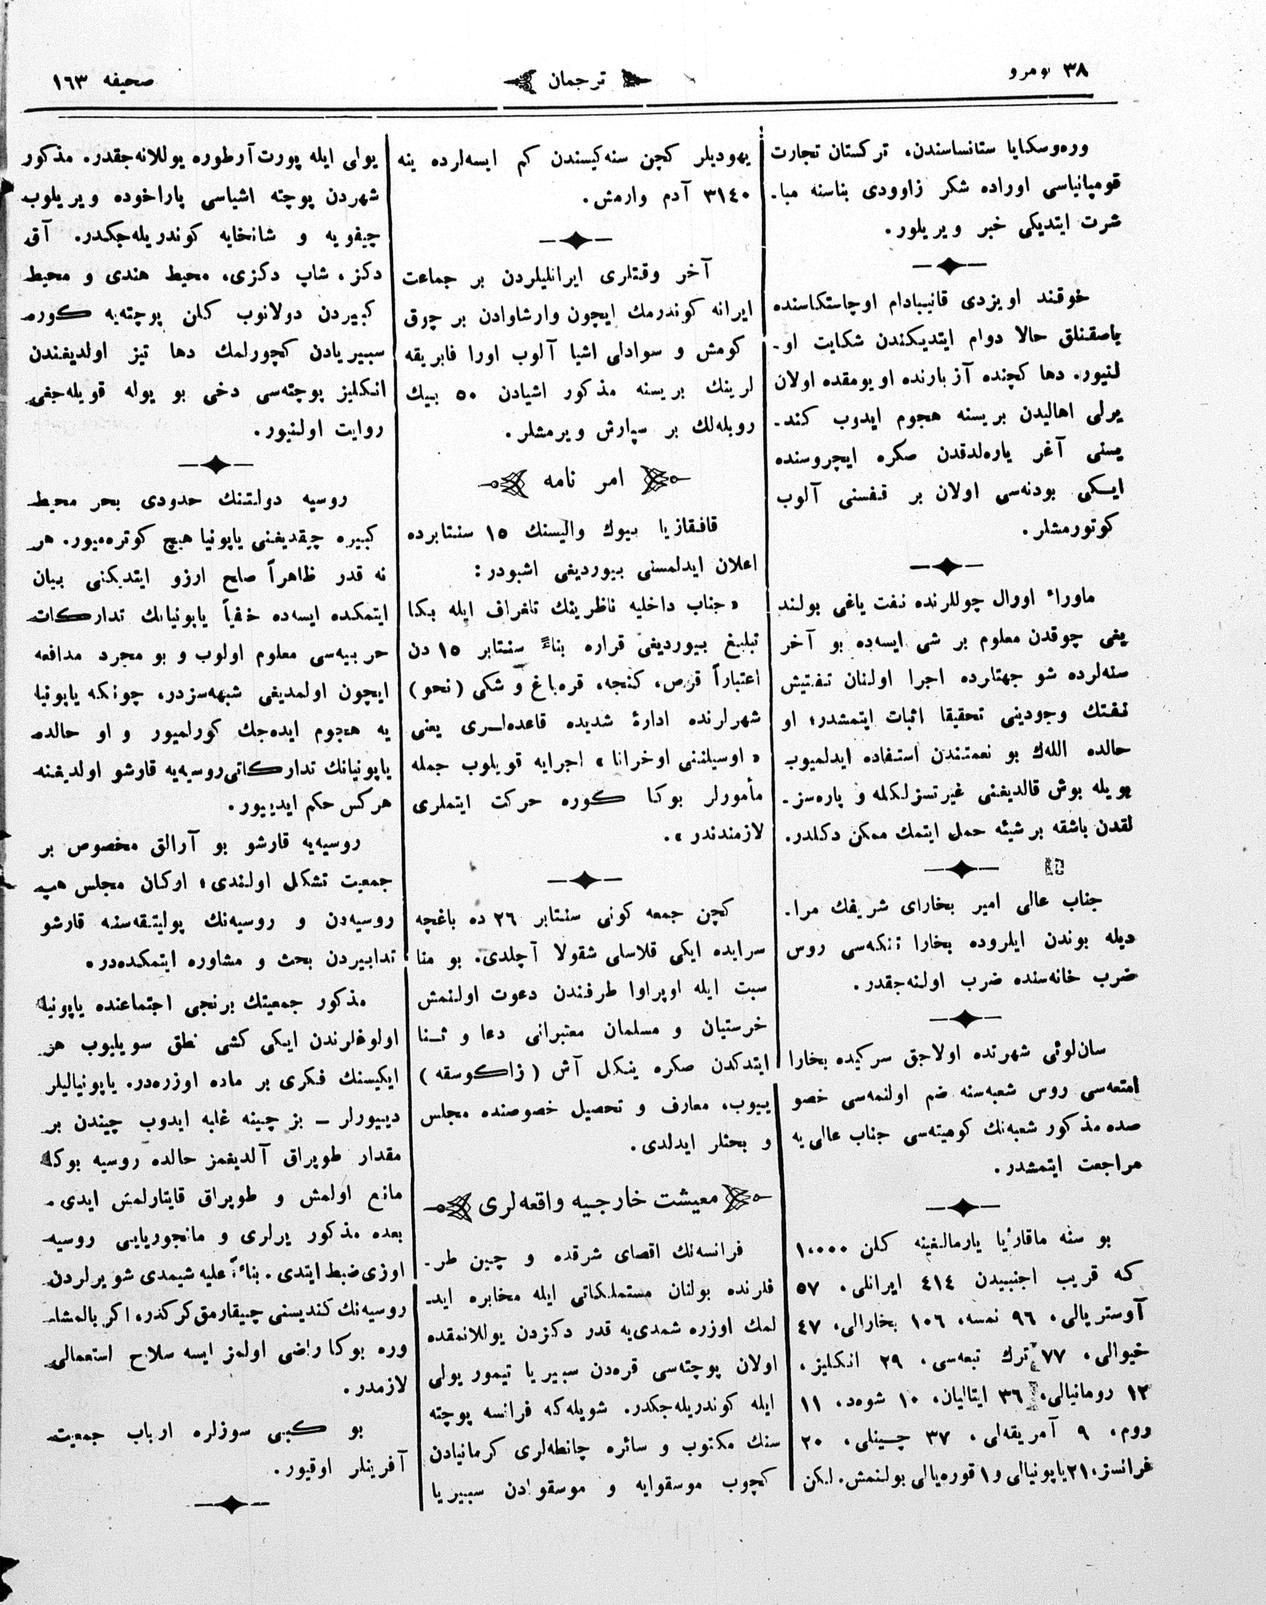 نومرو ٣٨
ترجمان
صحیفه ١٦٣
وره‌وسکایا ستانساسندن، ترکستان تجارت
قومپانیاسی اوراده شکر زاوودی بناسنه مبا-
شرت ایتدیکی خبر ویریلور.
خوقند اویزدی قانیبادام اوچاستکاسنده
یاصقنلق حالا دوام ایتدیکندن شکایت او-
لنیور. دها کچنده آز بارنده اویومقده اولان
یرلی اهالیدن بریسنه هجوم ایدوب کند-
یسنی آغر یاره‌لدقدن صکره ایچروسنده
ایکی بودنه‌سی اولان بر قفسنی آلوب
کوتورمشلر.
ماوراء اورال چوللرنده نفت یاغی بولند
یغی چوقدن معلوم بر شی ایسه‌ده بو آخر
سنه‌لرده شو جهتلرده اجرا اولنان تفتیش
نفتك وجودینی تحقیقا اثبات ایتمشدر؛ او
حالده اللهك بو نعمتندن استفاده ایدلمیوب
بویله بوش قالدیغنی غیرتسزلکلمه و پاره‌سز-
لقدن باشقه بر شیئه حمل ایتمك ممکن دکلدر.
جناب عالی امیر بخارای شریفك مرا-
دیله بوندن ایلروده بخارا تنکه‌سی روس
ضرب خانه‌سنده ضرب اولنه‌جقدر.
سان‌لوئی شهرنده اولاجق سرکیده بخارا
امتعه‌سی روس شعبه‌سنه ضم اولنمه‌سی خصو
صده مذکور شعبه‌نك کومیته‌سی جناب عالی یه
مراجعت ایتمشدر.
بو سنه ماقاریا یارمالغینه کلن ١٠٠٠٠
که قریب اجنبیدن ٤١٤ ایرانلی، ٥٧
آوستریالی، ٩٦ نمسه، ١٠٦ بخارالی، ٤٧
خیوالی، ٧٧ ترك تبعه‌سی، ٢٩ انکلیز،
١٢ رومانیالی، ٣٦ ایتالیان، ١٠ شوه‌د، ١١
روم، ٩ آمریقه‌لی، ٣٧ چینلی، ٢٠
فرانسز، ٢١ یاپونیالی و ١ قوره‌یالی بولنمش. لیکن
یهودیلر کچن سنه‌کیسندن کم ایسه‌لرده ینه
٣١٤٠ آدم وارمش.
آخر وقتلری ایرانلیلردن بر جماعت
ایرانه کوندرمك ایچون وارشاوادن بر چوق
کومش و سوادلی اشیا آلوب اورا فابریقه
لرینك بریسنه مذکور اشیادن ٥٠ بیك
روبله‌لك بر سپارش ویرمشلر.
امر نامه
قافقازیا بیوك والیسنك ١٥ سنتابرده
اعلان ایدلمسنی بیوردیغی اشبودر:
« جناب داخلیه ناظرینك تلغراف ایله بکا
تبلیغ بیوردیغی قراره بناءً سنتابر ١٥ دن
اعتباراً قرص، کنجه، قره‌باغ و شکی (نخو)
شهرلرنده ادارۀ شدیده قاعده‌لری یعنی
« اوسیلننی اوخرانا » اجرایه قویلوب جمله
مأمورلر بوکا کوره حرکت ایتملری
لازمندندر ».
کچن جمعه کونی سنتابر ٢٦ ده باغچه
سرایده ایکی قلاسلی شقولا آچلدی. بو منا
سبت ایله اوپراوا طرفندن دعوت اولنمش
خرستیان و مسلمان معتبرانی دعا و ثنا
ایتدکدن صکره ینکل آش (زاکوسقه)
ییوب، معارف و تحصیل خصوصنده مجلس
و بحثلر ایدلدی.
معیشت خارجیه واقعه‌لری
فرانسه‌نك اقصای شرقده و چین طر-
فلرنده بولنان مستملکاتی ایله مخابره اید-
لمك اوزره شمدی‌یه قدر دکزدن یوللانمقده
اولان پوچته‌سی قره‌دن سیبریا تیمور یولی
ایله کوندریله‌جکدر. شویله‌که فرانسه پوچته
سنك مکتوب و سائره چانطه‌لری کرمانیادن
کچوب موسقوایه و موسقوادن سیبریا
یولی ایله پورت آرطوره یوللانه‌جقدر. مذکور
شهردن پوچته اشیاسی پاراخوده ویریلوب
چیفویه و شانخایه کوندریله‌جکدر. آق
دکز، شاپ دکزی، محیط هندی و محیط
کبیردن دولانوب کلن پوچته‌یه کوره
سیبریادن کچورلمك دها تیز اولدیغندن
انکلیز پوچته‌سی دخی بو یوله قویله‌جغی
روایت اولنیور.
روسیه دولتنك حدودی بحر محیط
کبیره چیقدیغنی یاپونیا هیچ کوتره‌میور. هر
نه قدر ظاهراً صلح ارزو ایتدیکنی بیان
ایتمکده ایسه‌ده خفیاً یاپونیانك تدارکات
حربیه‌سی معلوم اولوب و بو مجرد مدافعه
ایچون اولمدیغی شبهه‌سزدر. چونکه یاپونیا
یه هجوم ایده‌جك کورلمیور و او حالده
یاپونیانك تدارکاتی روسیه‌یه قارشو اولدیغنه
هرکس حکم ایدییور.
روسیه‌یه قارشو بو آرالق مخصوص بر
جمعیت تشکل اولندی؛ ارکان مجلس هپ
روسیه‌دن و روسیه‌نك پولیتقه‌سنه قارشو
تدابیردن بحث و مشاوره ایتمکده‌در.
مذکور جمعیتك برنجی اجتماعنده یاپونیا
اولوغلرندن ایکی کشی نطق سویلیوب هر
ایکیسنك فکری بر ماده اوزره‌در. یاپونیالیلر
دییورلر — بز چینه غلبه ایدوب چیندن بر
مقدار طوپراق آلدیغمز حالده روسیه بوکا
مانع اولمش و طوپراق قایتارلمش ایدی.
بعده مذکور یرلری و مانجوریایی روسیه
اوزی ضبط ایتدی. بناءً علیه شیمدی شو یرلردن
روسیه‌نك کندیسنی چیقارمق کرکدر، اکر بالمشا-
وره بوکا راضی اولمز ایسه سلاح استعمالی
لازمدر.
بو کبی سوزلره ارباب جمعیت
آفرینلر اوقیور.